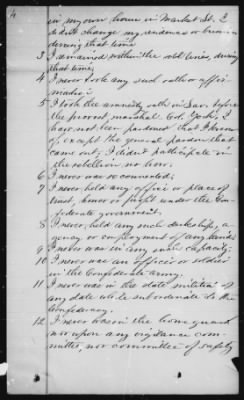 4
in my own home in Market St. I
didn't change my residence or business
during that time
3 I remained within the rebel lines, during
that time.
4 I never took any such oath or affir
mation
5 I took the amnesty oath in Sav. before
the provost marshal. I
have not been pardoned that I know
of, except the general pardon that
came out, I didn't participate in
the rebellion no how.
6 I never was so connected;
7 I never held any office or place of
trust, honor or profit under the Con-
federate government.
8 I never held any such clerkship, a
gency or employment of any kind;
9 I never was in any such capacity;
10 I never was an officer or soldier
in the Confederate army.
11 I never was in the state militia of
any state while subordinate to the
Confederacy.
12 I never was in the home guard
nor upon any vigilance com-
mittee, nor committee of safety